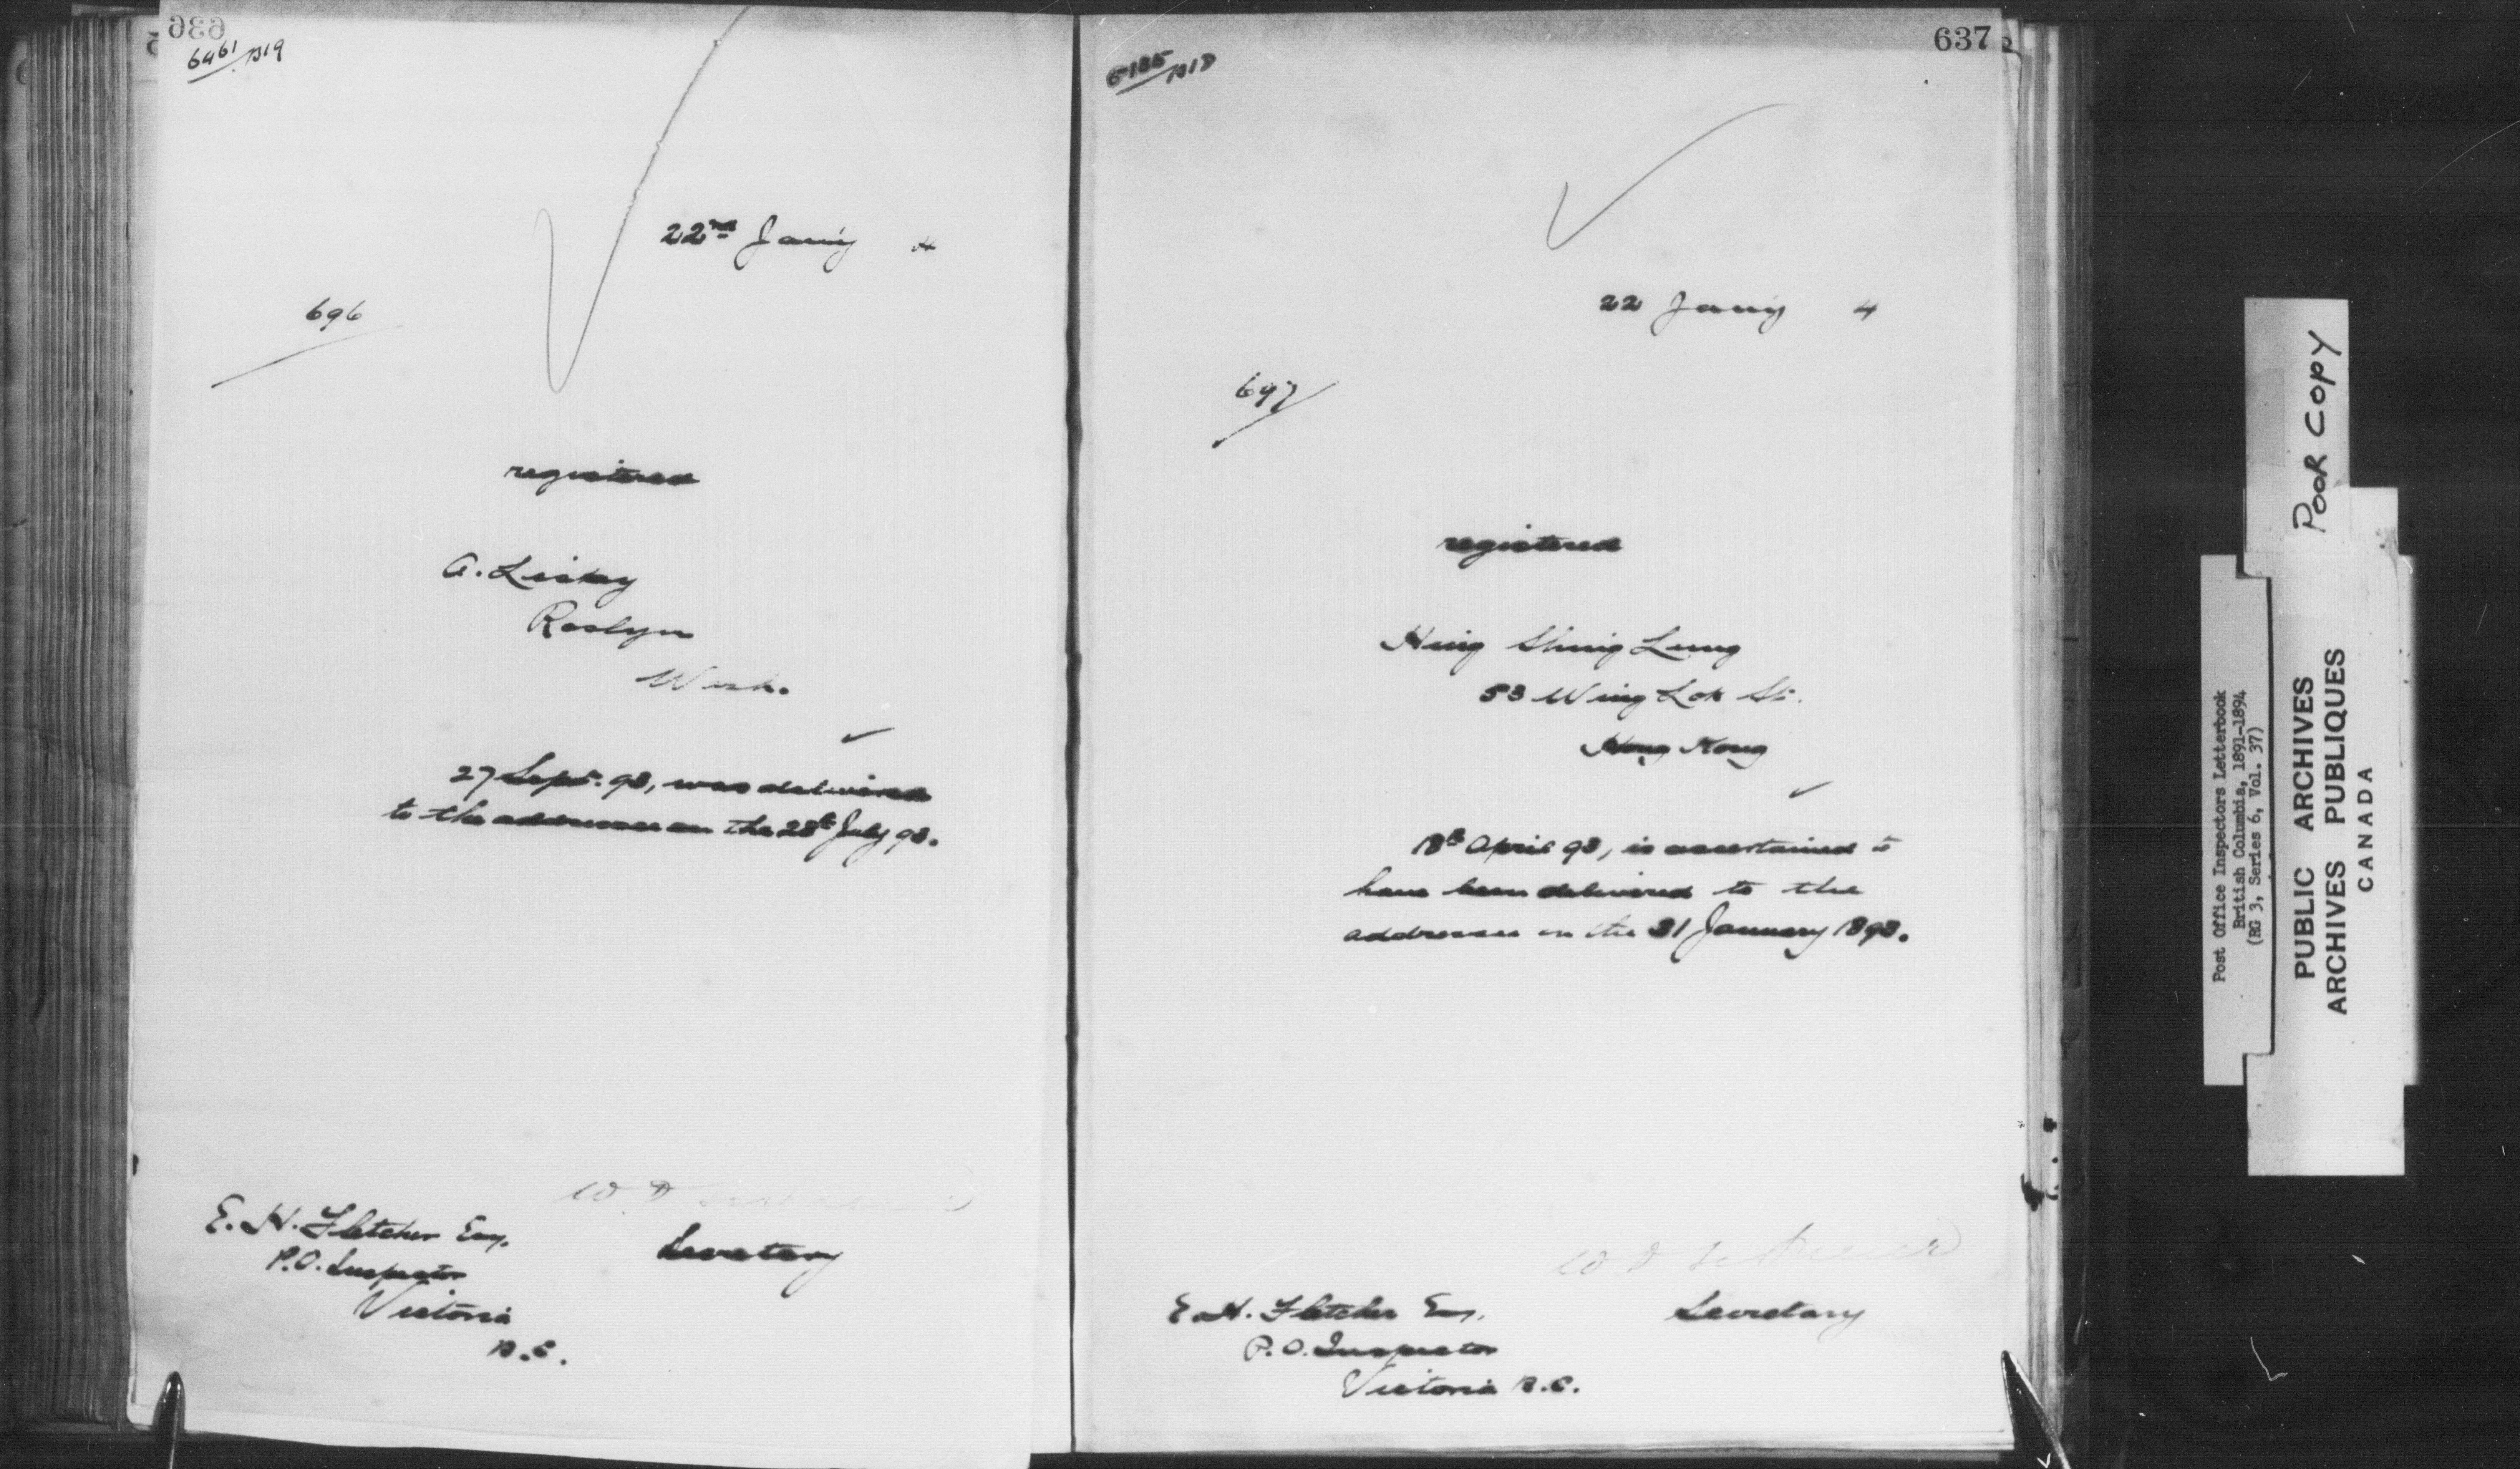 636
6461/B19
22nd Jany 4
696
registered
A. Lisky
Roslyn
Wash.
27 Sept. 93, was delivered
to the addressee on the 28th July 93.
W D
E. H. Fletcher Esq.
Secretary
P.O. Inspector
Victoria
B.C.
637
5185/B18
22 Jany 4
697
registered
Hing Shing Lung
53 Wing Lok St.
Hong Kong
18th April 93, is ascertained to
have been delivered to the
addressee on the 31 January 1893.
W D
E. H. Fletcher Esq.
Secretary
P.O. Inspector
Victoria B.C.
Poor Copy
Post Office Inspectors Letterbook
British Columbia, 1891-1894
(RG 3, Series 6, Vol. 37)
PUBLIC ARCHIVES
ARCHIVES PUBLIQUES
CANADA